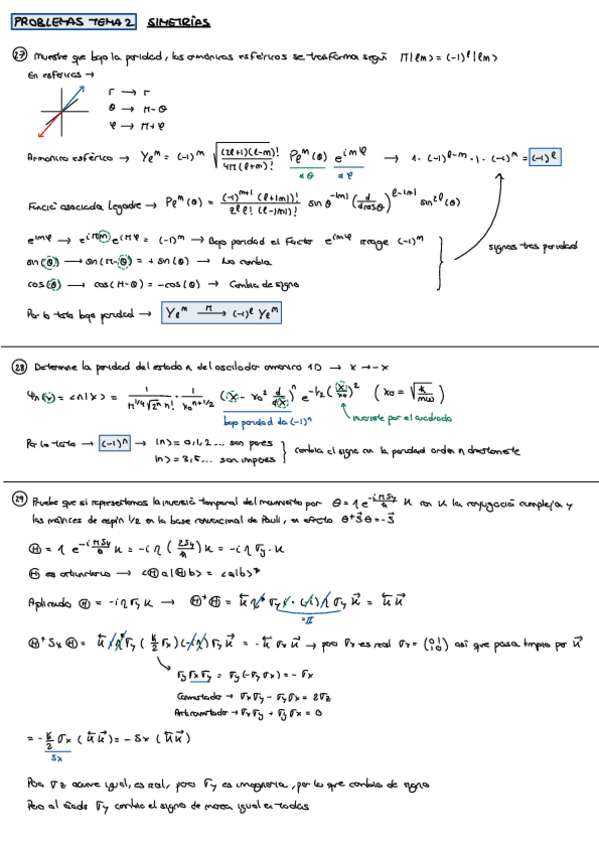 PROBLEMAS TEMA 2 SIMETRÍAS
27 Muestre que bajo la paridad, los armónicos esféricos se trasforma según Π|lm> = (-1)^l |lm>
En esféricas →
r → r
θ → π - θ
φ → π + φ
Armónico esférico → Y_l^m = (-1)^m √((2l+1)(l-m)! / 4π(l+m)!) P_l^m(θ) e^{imφ} → 1 · (-1)^{l-m} · 1 · (-1)^m = (-1)^l
α θ α φ
Función asociada Legendre → P_l^m(θ) = (-1)^{m+l} (l+|m|)! / 2^l l! (l-|m|)! sin θ^{-|m|} (d/dcosθ)^{l-|m|} sin^{2l}(θ)
e^{imφ} → e^{imπ} e^{imφ} = (-1)^m → Bajo paridad el factor e^{imφ} (-1)^m
sin(θ) → sin(π-θ) = + sin(θ) → No cambia
cos(θ) → cos(π-θ) = -cos(θ) → Cambia de signo
signos tras paridad
Por lo tanto bajo paridad → Y_l^m →^Π (-1)^l Y_l^m
28 Determine la paridad del estado n del oscilador armónico 1D → x → -x
Ψ_n(x) = <n|x> = 1/(π^{1/4} √(2^n n!)) · 1/x_0^{n+1/2} (x - x_0² d/dx)^n e^{-1/2 (x/x_0)²} (x_0 = √(ħ/mω))
bajo paridad da (-1)^n
invariante por el cuadrado
Por lo tanto → (-1)^n → |n> = 0,1,2 ... son pares
|n> = 3,5,... son impares
cambia el signo en la paridad orden n
29 Pruebe que si representamos la inversión temporal del movimiento por θ = η e^{-iπSy/ħ} K con K la conjugación compleja y
las matrices de espín 1/2 en la base convencional de Pauli, en efecto θ⁺S⃗θ = -S⃗
Θ = η e^{-iπSy/ħ} K = -iη (2Sy/ħ) K = -iη σy · K
Θ es antiunitario → <Θa|Θb> = <a|b>*
Aplicando Θ = -iησyK → Θ⁺Θ = K⃖ η* σy i · (-i) η σy K⃗ = K⃖ K⃗
= II
Θ⁺SxΘ = K⃖ i η* σy (ħ/2 σx) (-iη) σy K⃗ = -K⃖ σx K⃗ → pero σx es real σx = (0 1 / 1 0) así que pasa limpio por K⃗
σyσxσy = σy(-σyσx) = -σx
Conmutador → σxσy - σyσx = 2σz
Anticonmutador → σxσy + σyσx = 0
= -ħ/2 σx (K⃖K⃗) = -Sx (K⃖K⃗)
Sx
Para σz ocurre igual, es real, pero σy es imaginaria, por lo que cambia de signo
Pero al añadir σy cambia el signo de manera igual en todas